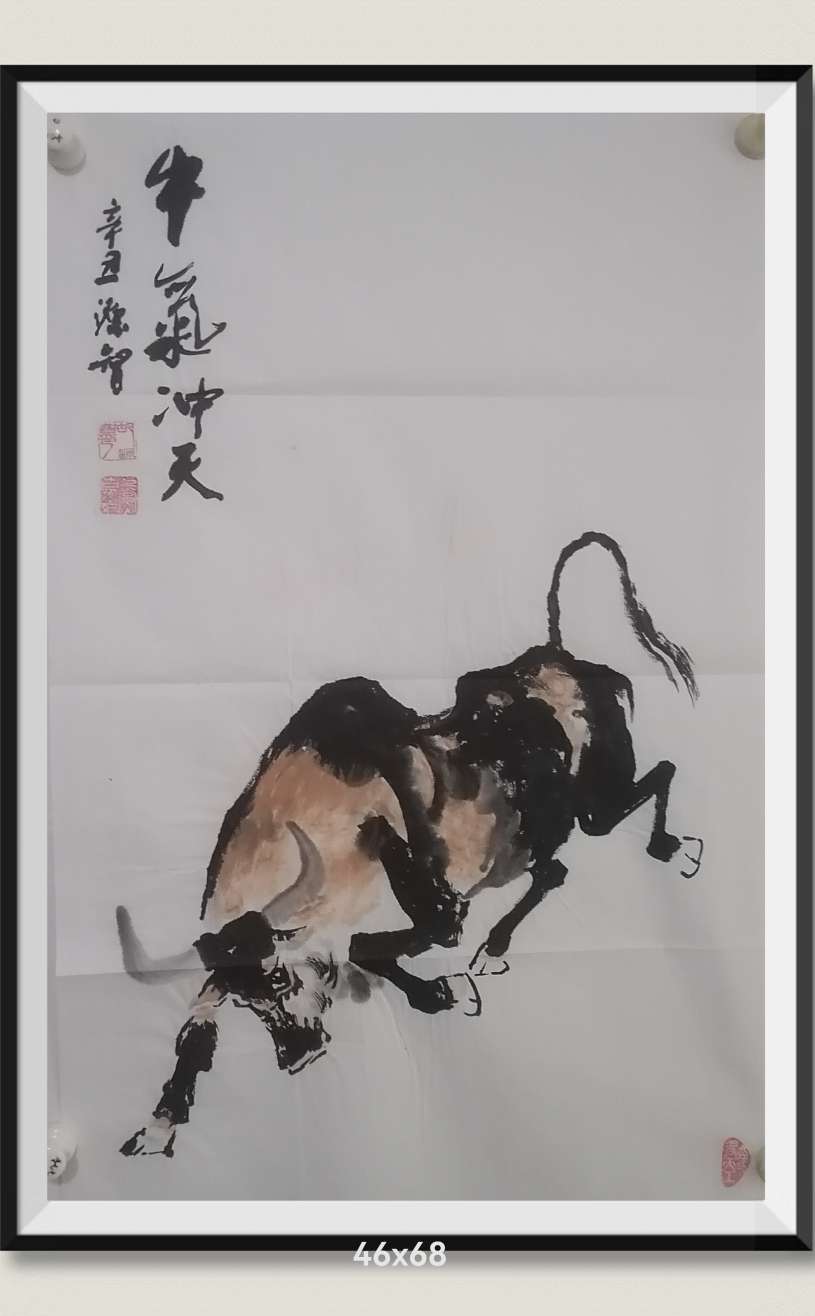 牛氣冲天
辛丑源智
46x68